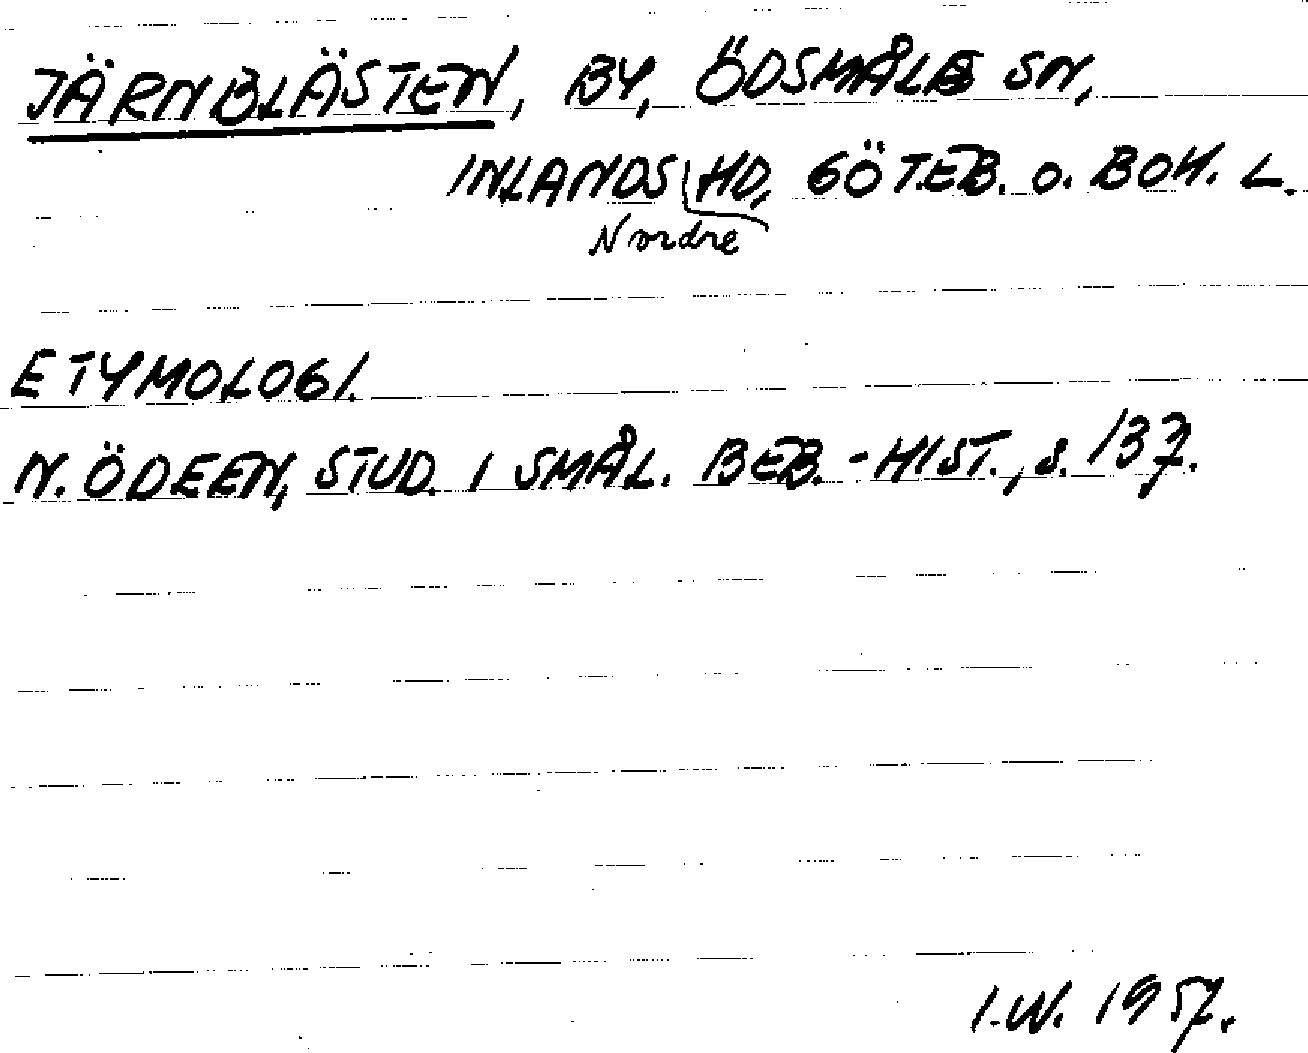 JÄRNBLÄSTEN, BY, ÖDSMÅLS SN,
INLANDS HD, GÖTEB. O. BOH. L.
Nordre
ETYMOLOGI.
N. ÖDEEN, STUD. I SMÅL. BEB.-HIST., S. 137.
I.W. 1957.